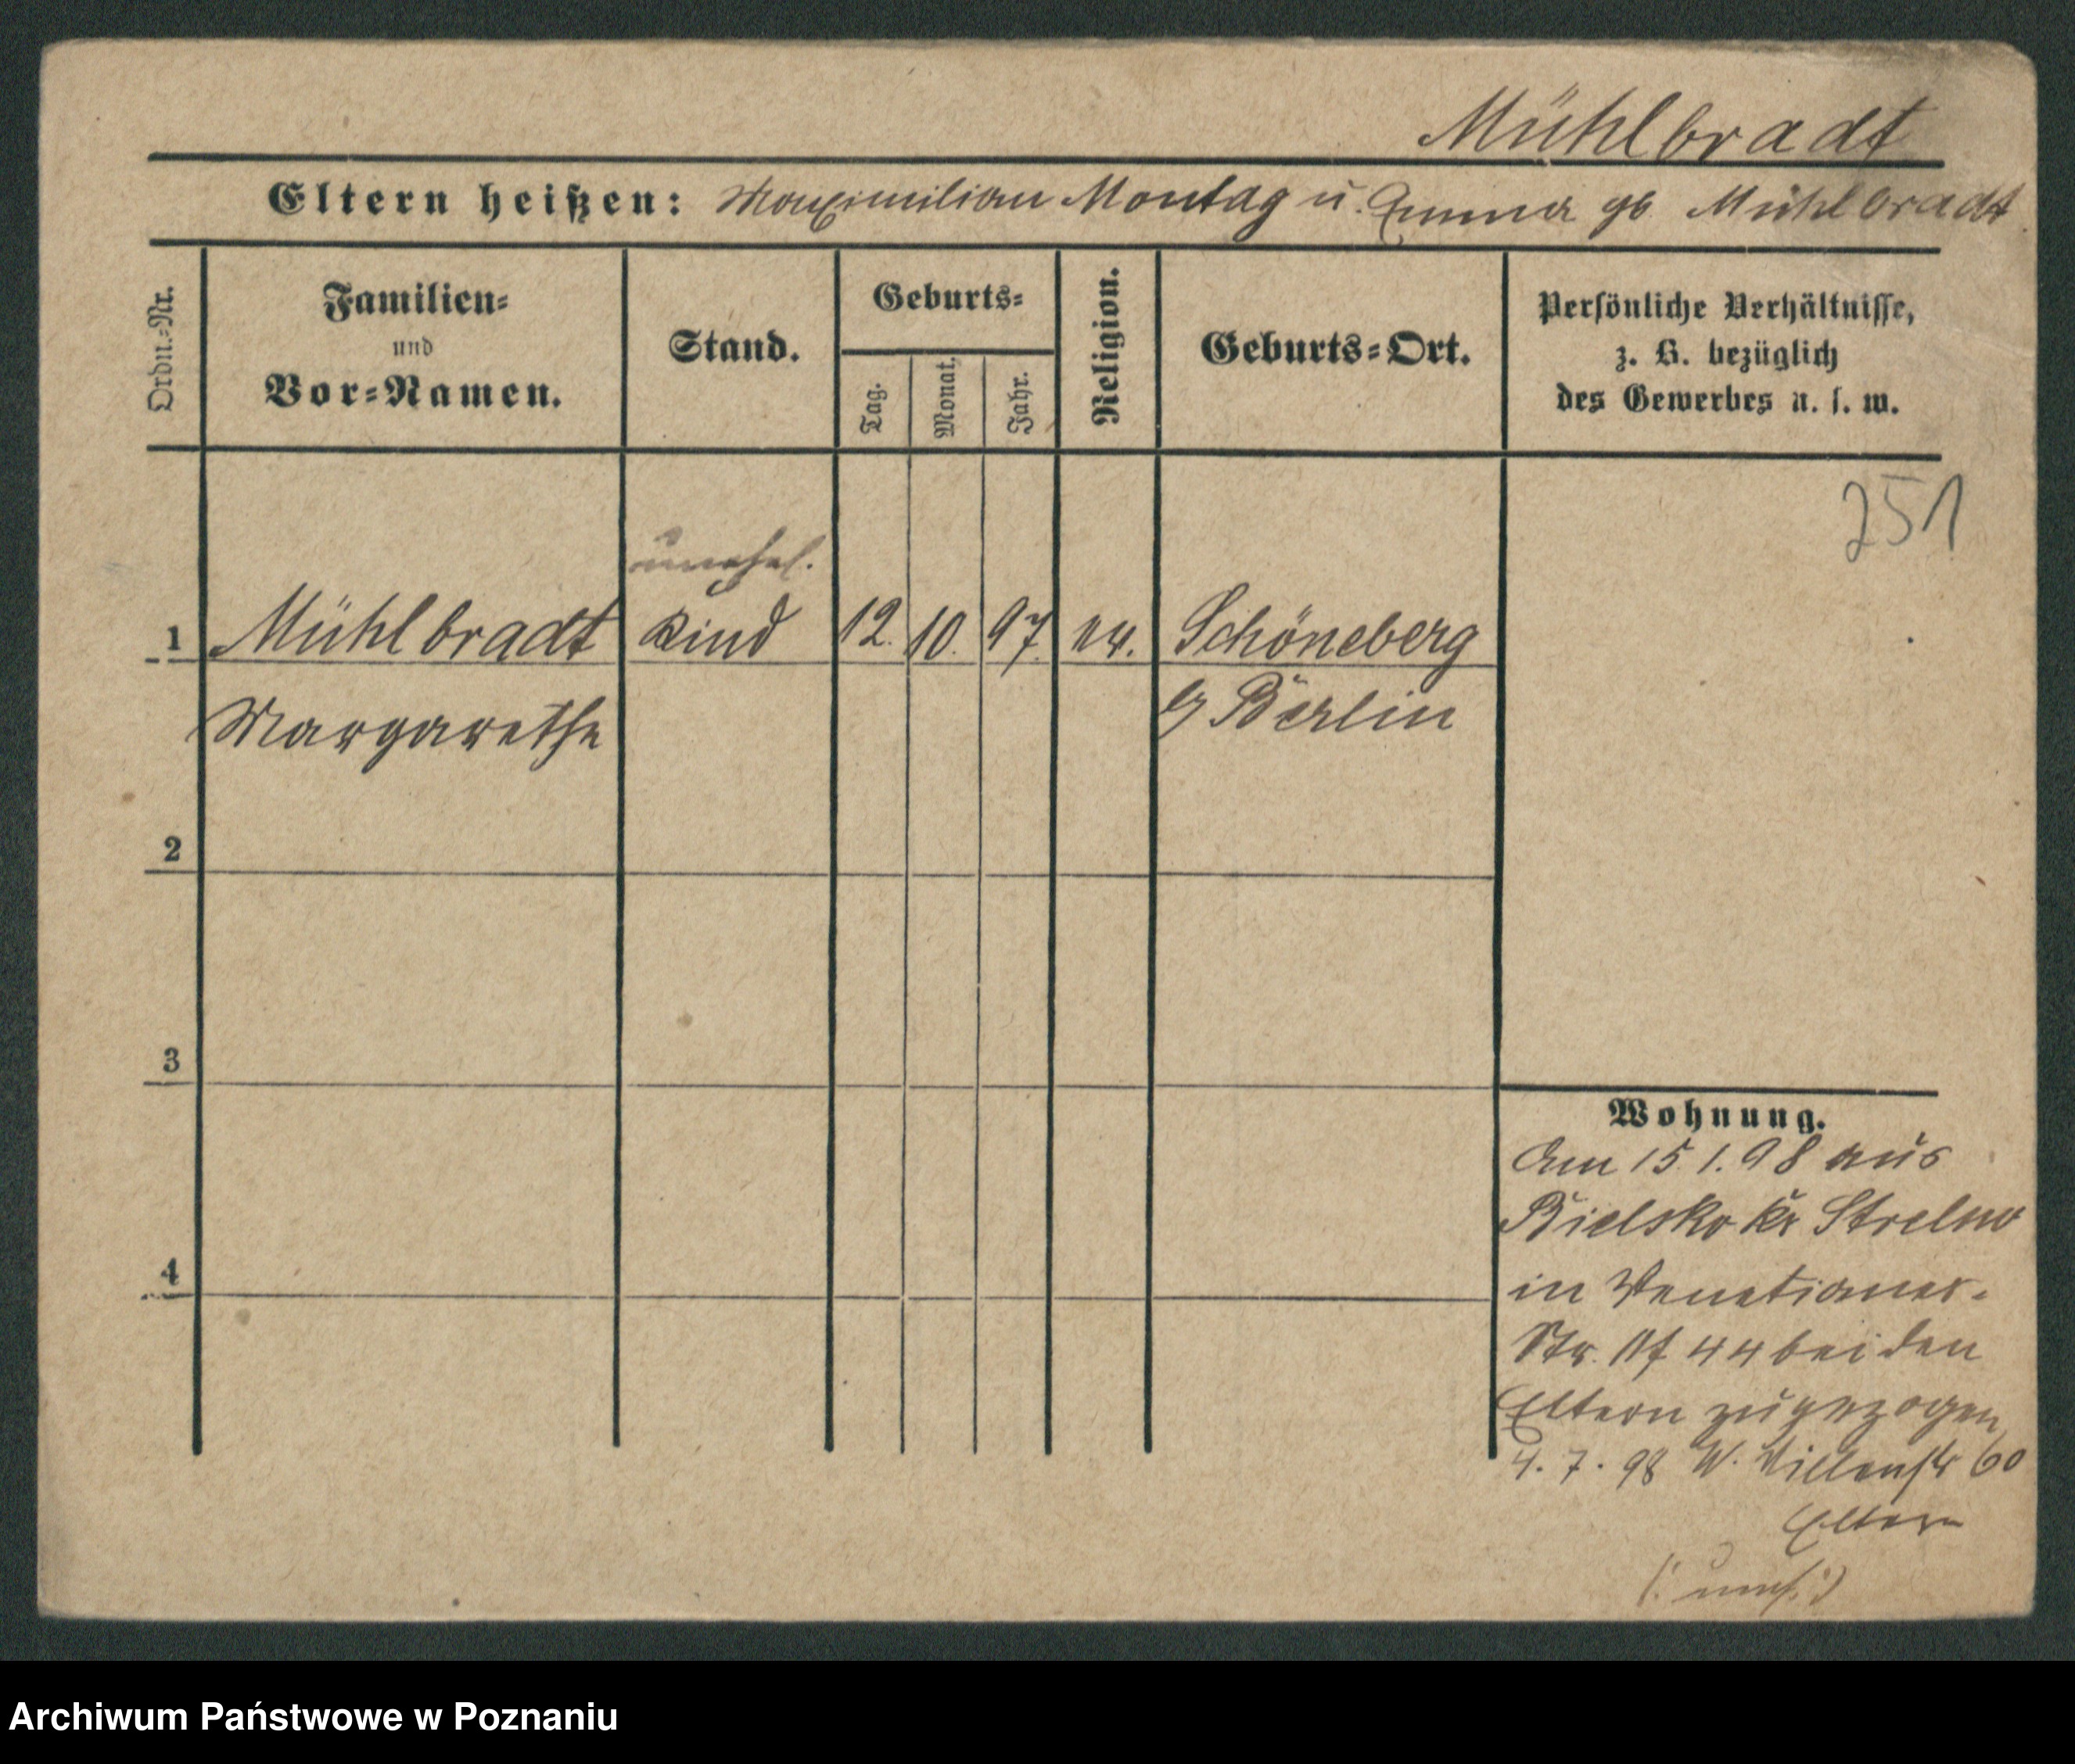 Mühlbradt
Eltern heißen: Maximilian Montag u. Emma gb Mühlbradt
Ordn.-Nr.
Familien-
und
Vor-Namen.
Stand.
Geburts-
Tag.
Monat.
Jahr.
Religion.
Geburts-Ort.
Persönliche Verhältnisse,
z. B. bezüglich
des Gewerbes u. s. w.
251
unehel.
1 Mühlbradt Kind 12. 10. 97. ev. Schöneberg
Margarethe b/ Berlin
2
3
4
Wohnung.
Am 15. 1. 98 aus
Bielsko Kr Strelno
in Venetianer-
Str. 44 bei den
Eltern zugezogen
4. 7. 98 W. 60
Eltern
Archiwum Państwowe w Poznaniu